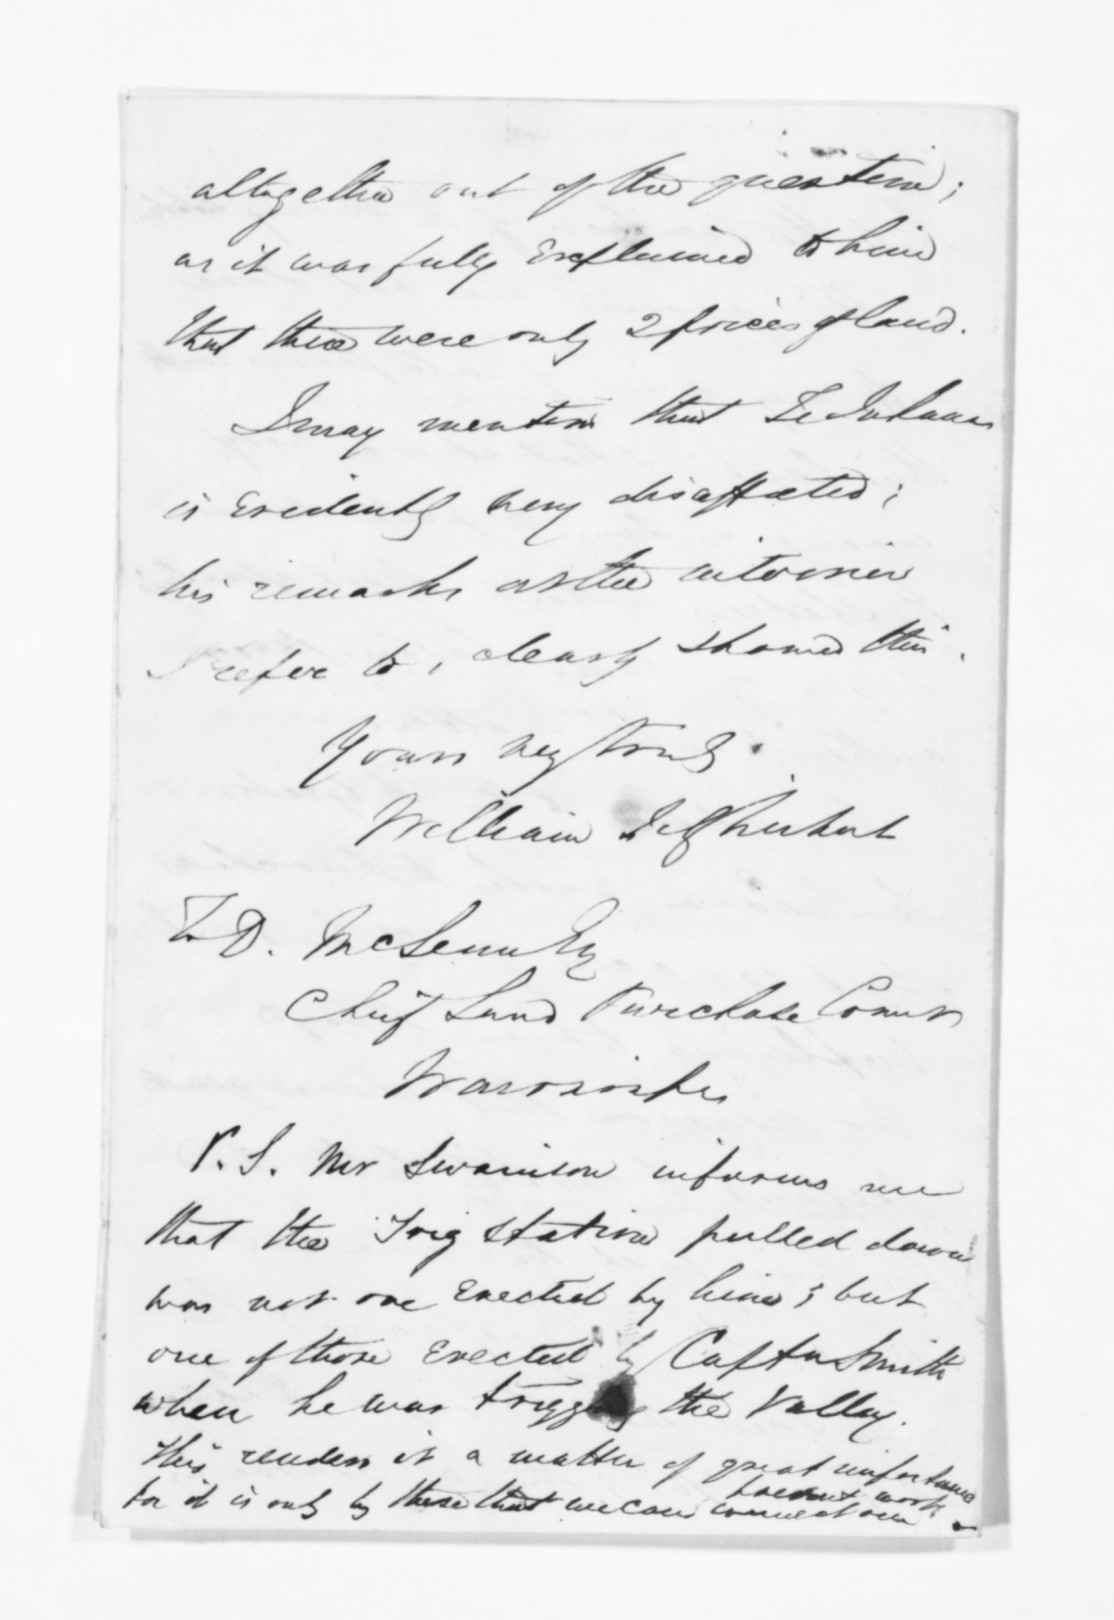 altogether out of the question;
as it was fully explained to him
that there were only 2 prices of land.
I may mention that
is evidently very disaffected;
his remarks at the interview
I refer to, clearly showed this.
Yours very truly
William
To D. McLean Esq
Chief Land Purchase Comr
P.S. Mr Swainson informs me
that the Trig station pulled down
was not one erected by him; but
one of those erected by Captn Smith
when he was trigging the Valley.
This renders it a matter of great importance
for it is only by these that we can connect our
present work